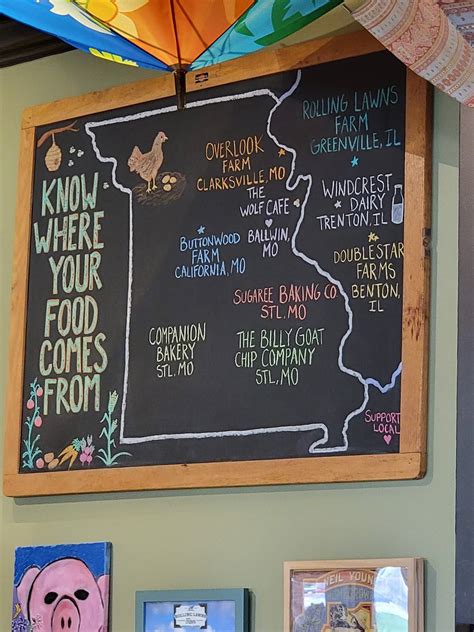 KNOW
WHERE
YOUR
FOOD
COMES
FROM
OVERLOOK
FARM
CLARKSVILLE, MO
THE
WOLF CAFE
BALLWIN,
MO
BUTTONWOOD
FARM
CALIFORNIA, MO
SUGAREE BAKING CO
STL, MO
COMPANION
BAKERY
STL. MO
THE BILLY GOAT
CHIP COMPANY
STL, MO
ROLLING LAWNS
FARM
GREENVILLE, IL
WINDCREST
DAIRY
TRENTON, IL
DOUBLESTAR
FARMS
BENTON,
IL
SUPPORT
LOCAL
ROLLING LAWNS
NEIL YOUNG